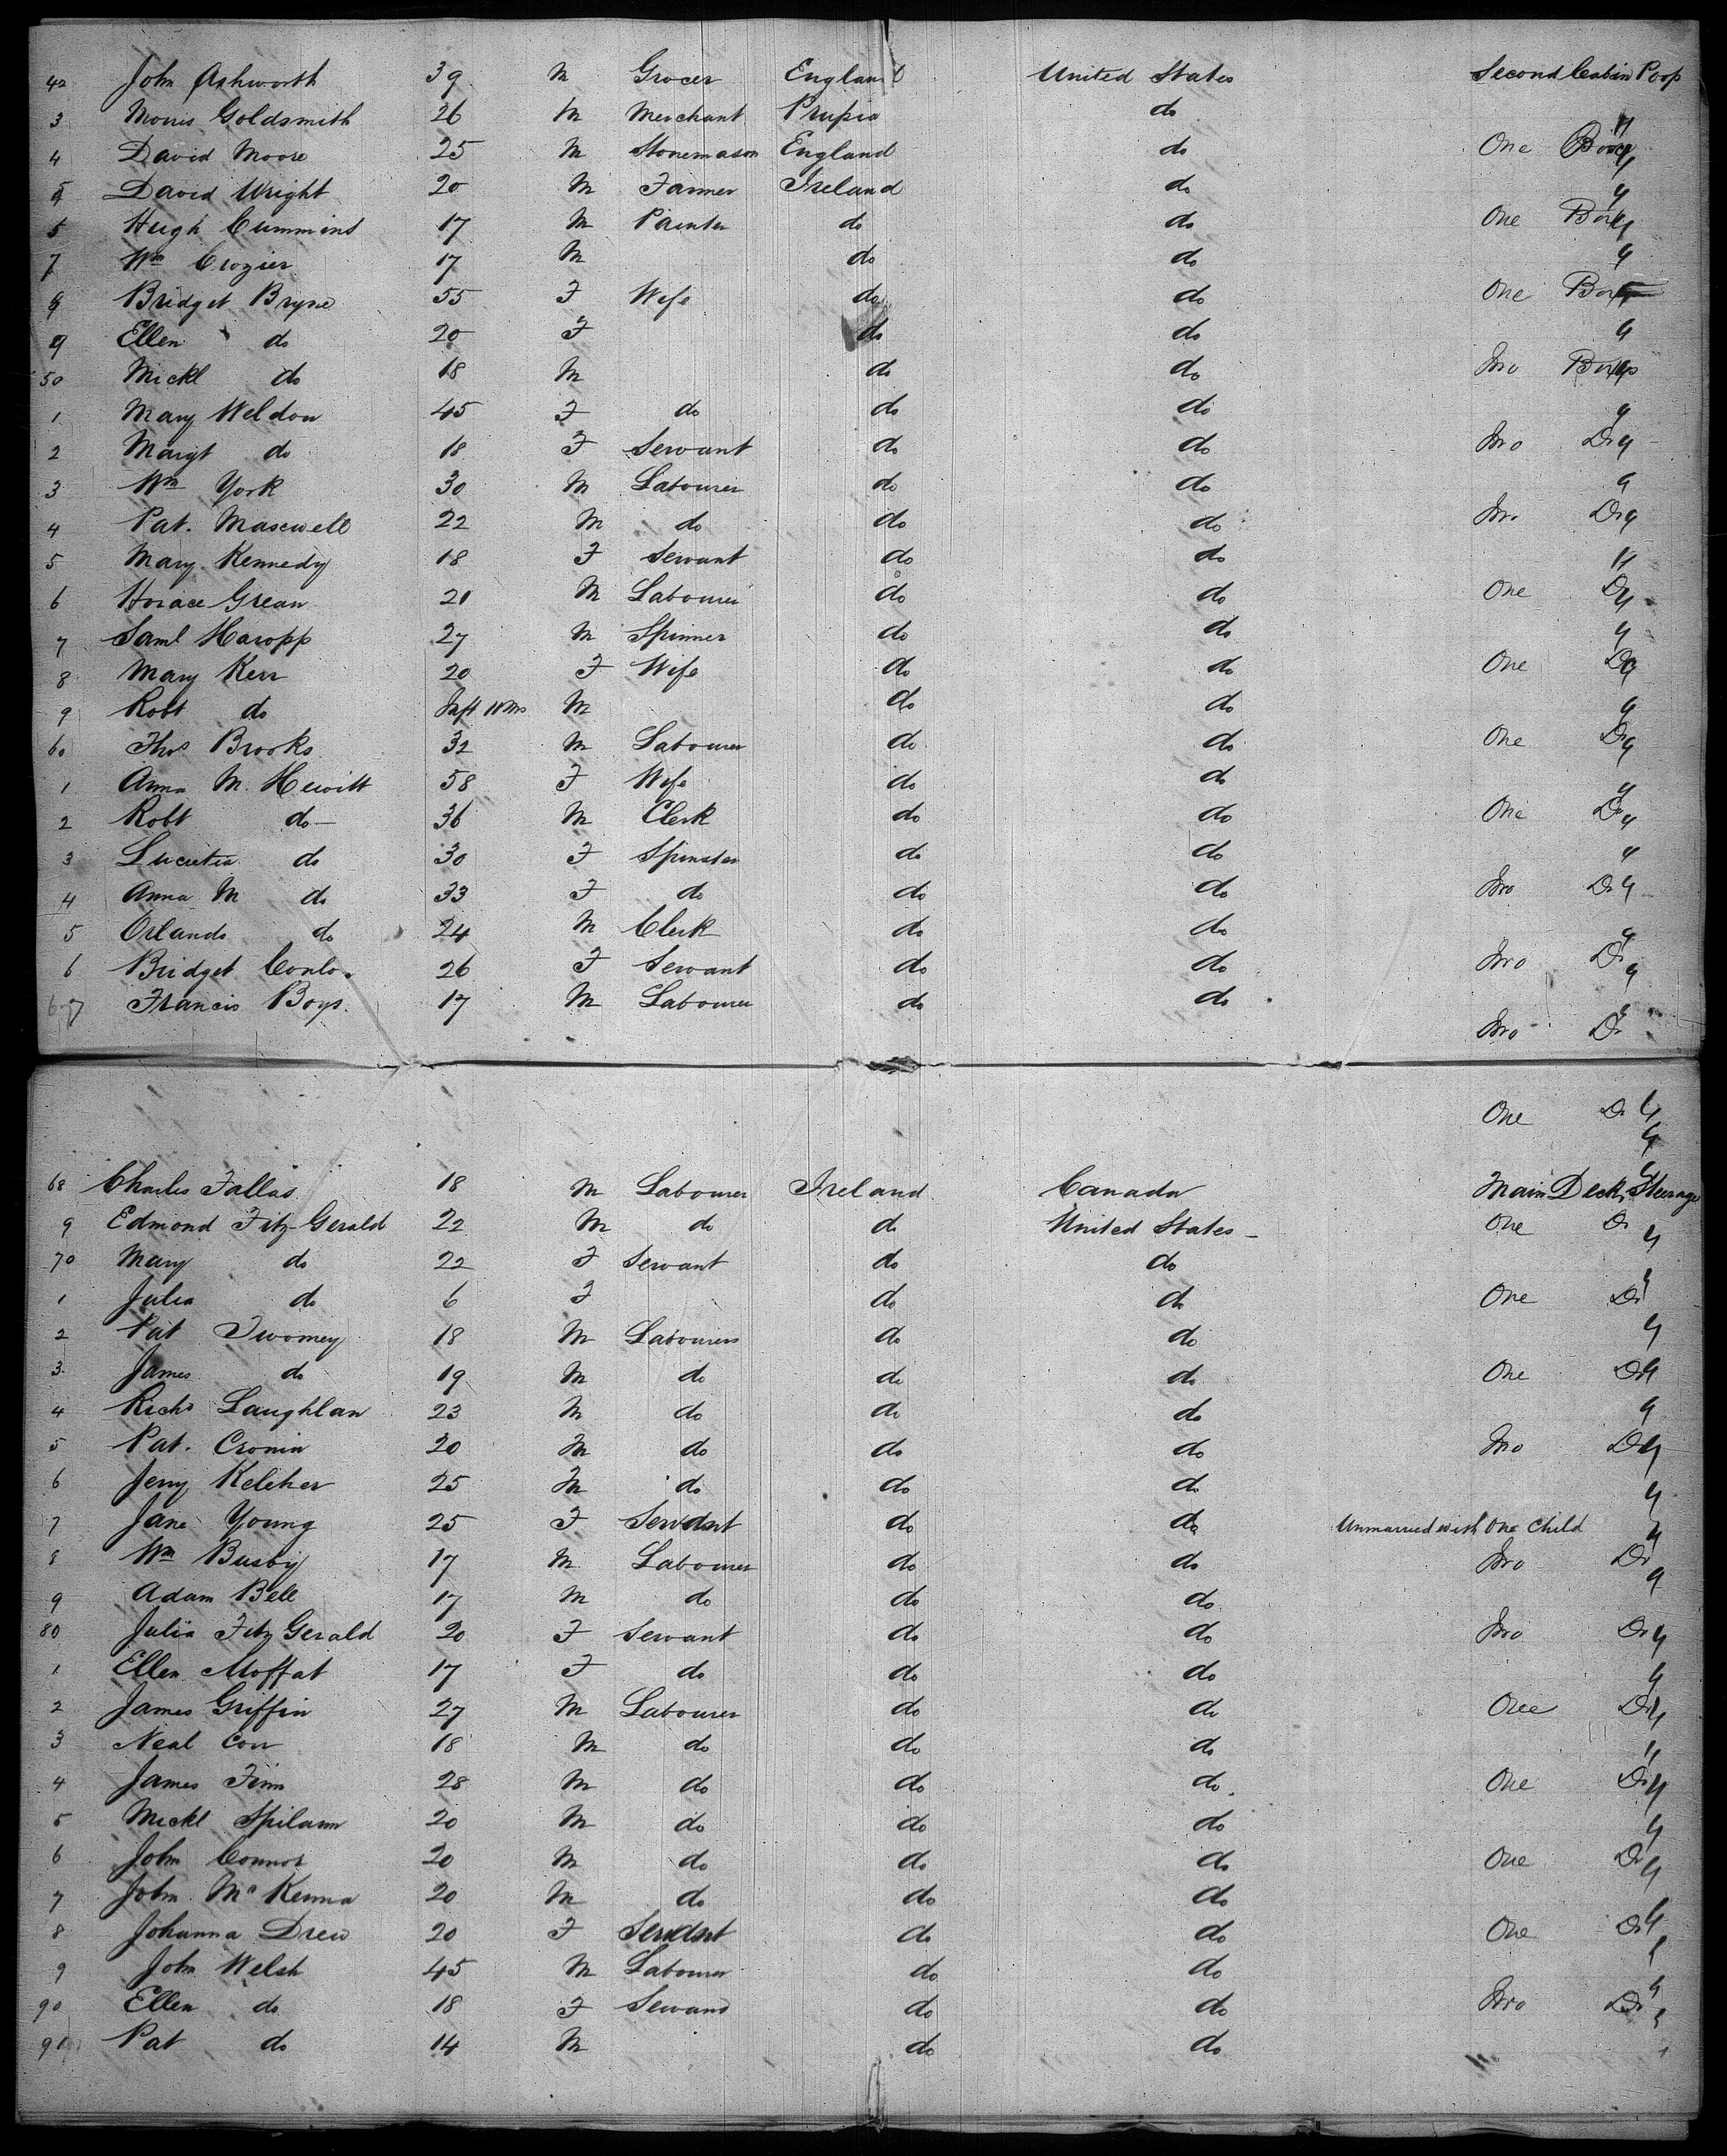 42 John Ashworth 39 M Grocer England United States Second Cabin Poop
3 Morris Goldsmith 26 M Merchant Prupia do "
4 David Moore 25 M Stonemason England do One Box "
5 David Wright 20 M Farmer Ireland do "
5 Hugh Cummins 17 M Painter do do One Box "
7 Wm Crozier 17 M do do "
8 Bridget Bryne 55 F Wife do do One Box "
9 Ellen do 20 F do do "
50 Mickl do 18 M do do Two Boxes "
1 Mary Weldon 45 F do do do "
2 Margt do 18 F Servant do do Two Do "
3 Wm York 30 M Labourer do do "
4 Pat. Maxwell 22 M do do do Two Do "
5 Mary Kennedy 18 F Servant do do "
6 Horace Grean 21 M Labourer do do One Do "
7 Saml Haropp 27 M Spinner do do "
8 Mary Kerr 20 F Wife do do One Do "
9 Robt do Inft M do do "
60 Thos Brooks 32 M Labourer do do One Do "
1 Anna M. Hewitt 58 F Wife do do "
2 Robt do 36 M Clerk do do One Do "
3 Lucretia do 30 F Spinster do do "
4 Anna M do 33 F do do do Two Do "
5 Orlando do 24 M Clerk do do "
6 Bridget Conlo. 26 F Servant do do Two Do "
67 Francis Boys. 17 M Labourer do do "
Two Do
One Do "
"
68 Charles Fallas 18 M Labourer Ireland Canada Main Deck, Steerage
9 Edmond Fitz-Gerald 22 M do do United States One Do "
70 Mary do 22 F Servant do do "
1 Julia do 6 F do do One Do
2 Pat Twomey 18 M Labourers do do "
3 James do 19 M do do do One Do "
4 Richd Laughlan 23 M do do do "
5 Pat. Cronin 20 M do do do Two Do "
6 Jerry Keleher 25 M do do do "
7 Jane Young 25 F Servant do do Unmarried with One Child "
8 Wm Busby 17 M Labourer do do Two Do "
9 Adam Bell 17 M do do do
80 Julia Fitz Gerald 20 F Servant do do Two Do "
1 Ellen Moffat 17 F do do do "
2 James Griffin 27 M Labourer do do One Do "
3 Neal Corr 18 M do do do "
4 James Finn 28 M do do do One Do "
5 Mickl Spilann 20 M do do do "
6 John Connor 20 M do do do One Do "
7 John McKenna 20 M do do do "
8 Johanna Drew 20 F Servant do do One Do "
9 John Welsh 45 M Labourer do do "
90 Ellen do 18 F Servant do do Two Do "
91 Pat do 14 M do do "